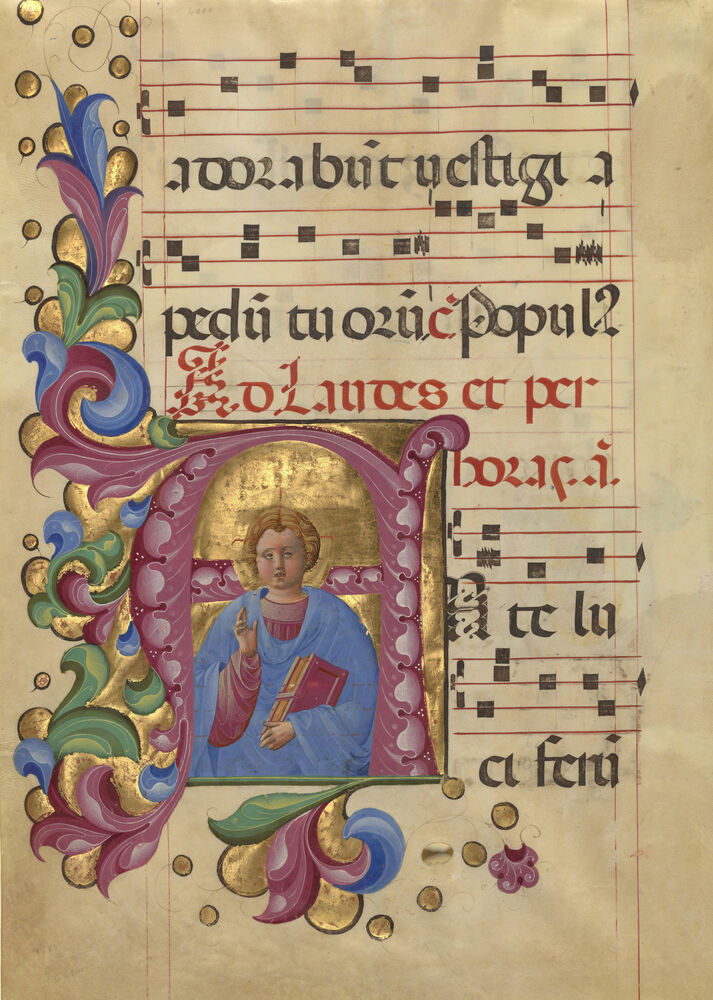 adorabūt uestigi a
pedū tu orū c̄ Populꝝ
Ad Laudes et per
horas. ā.
A te lu
ci ferū